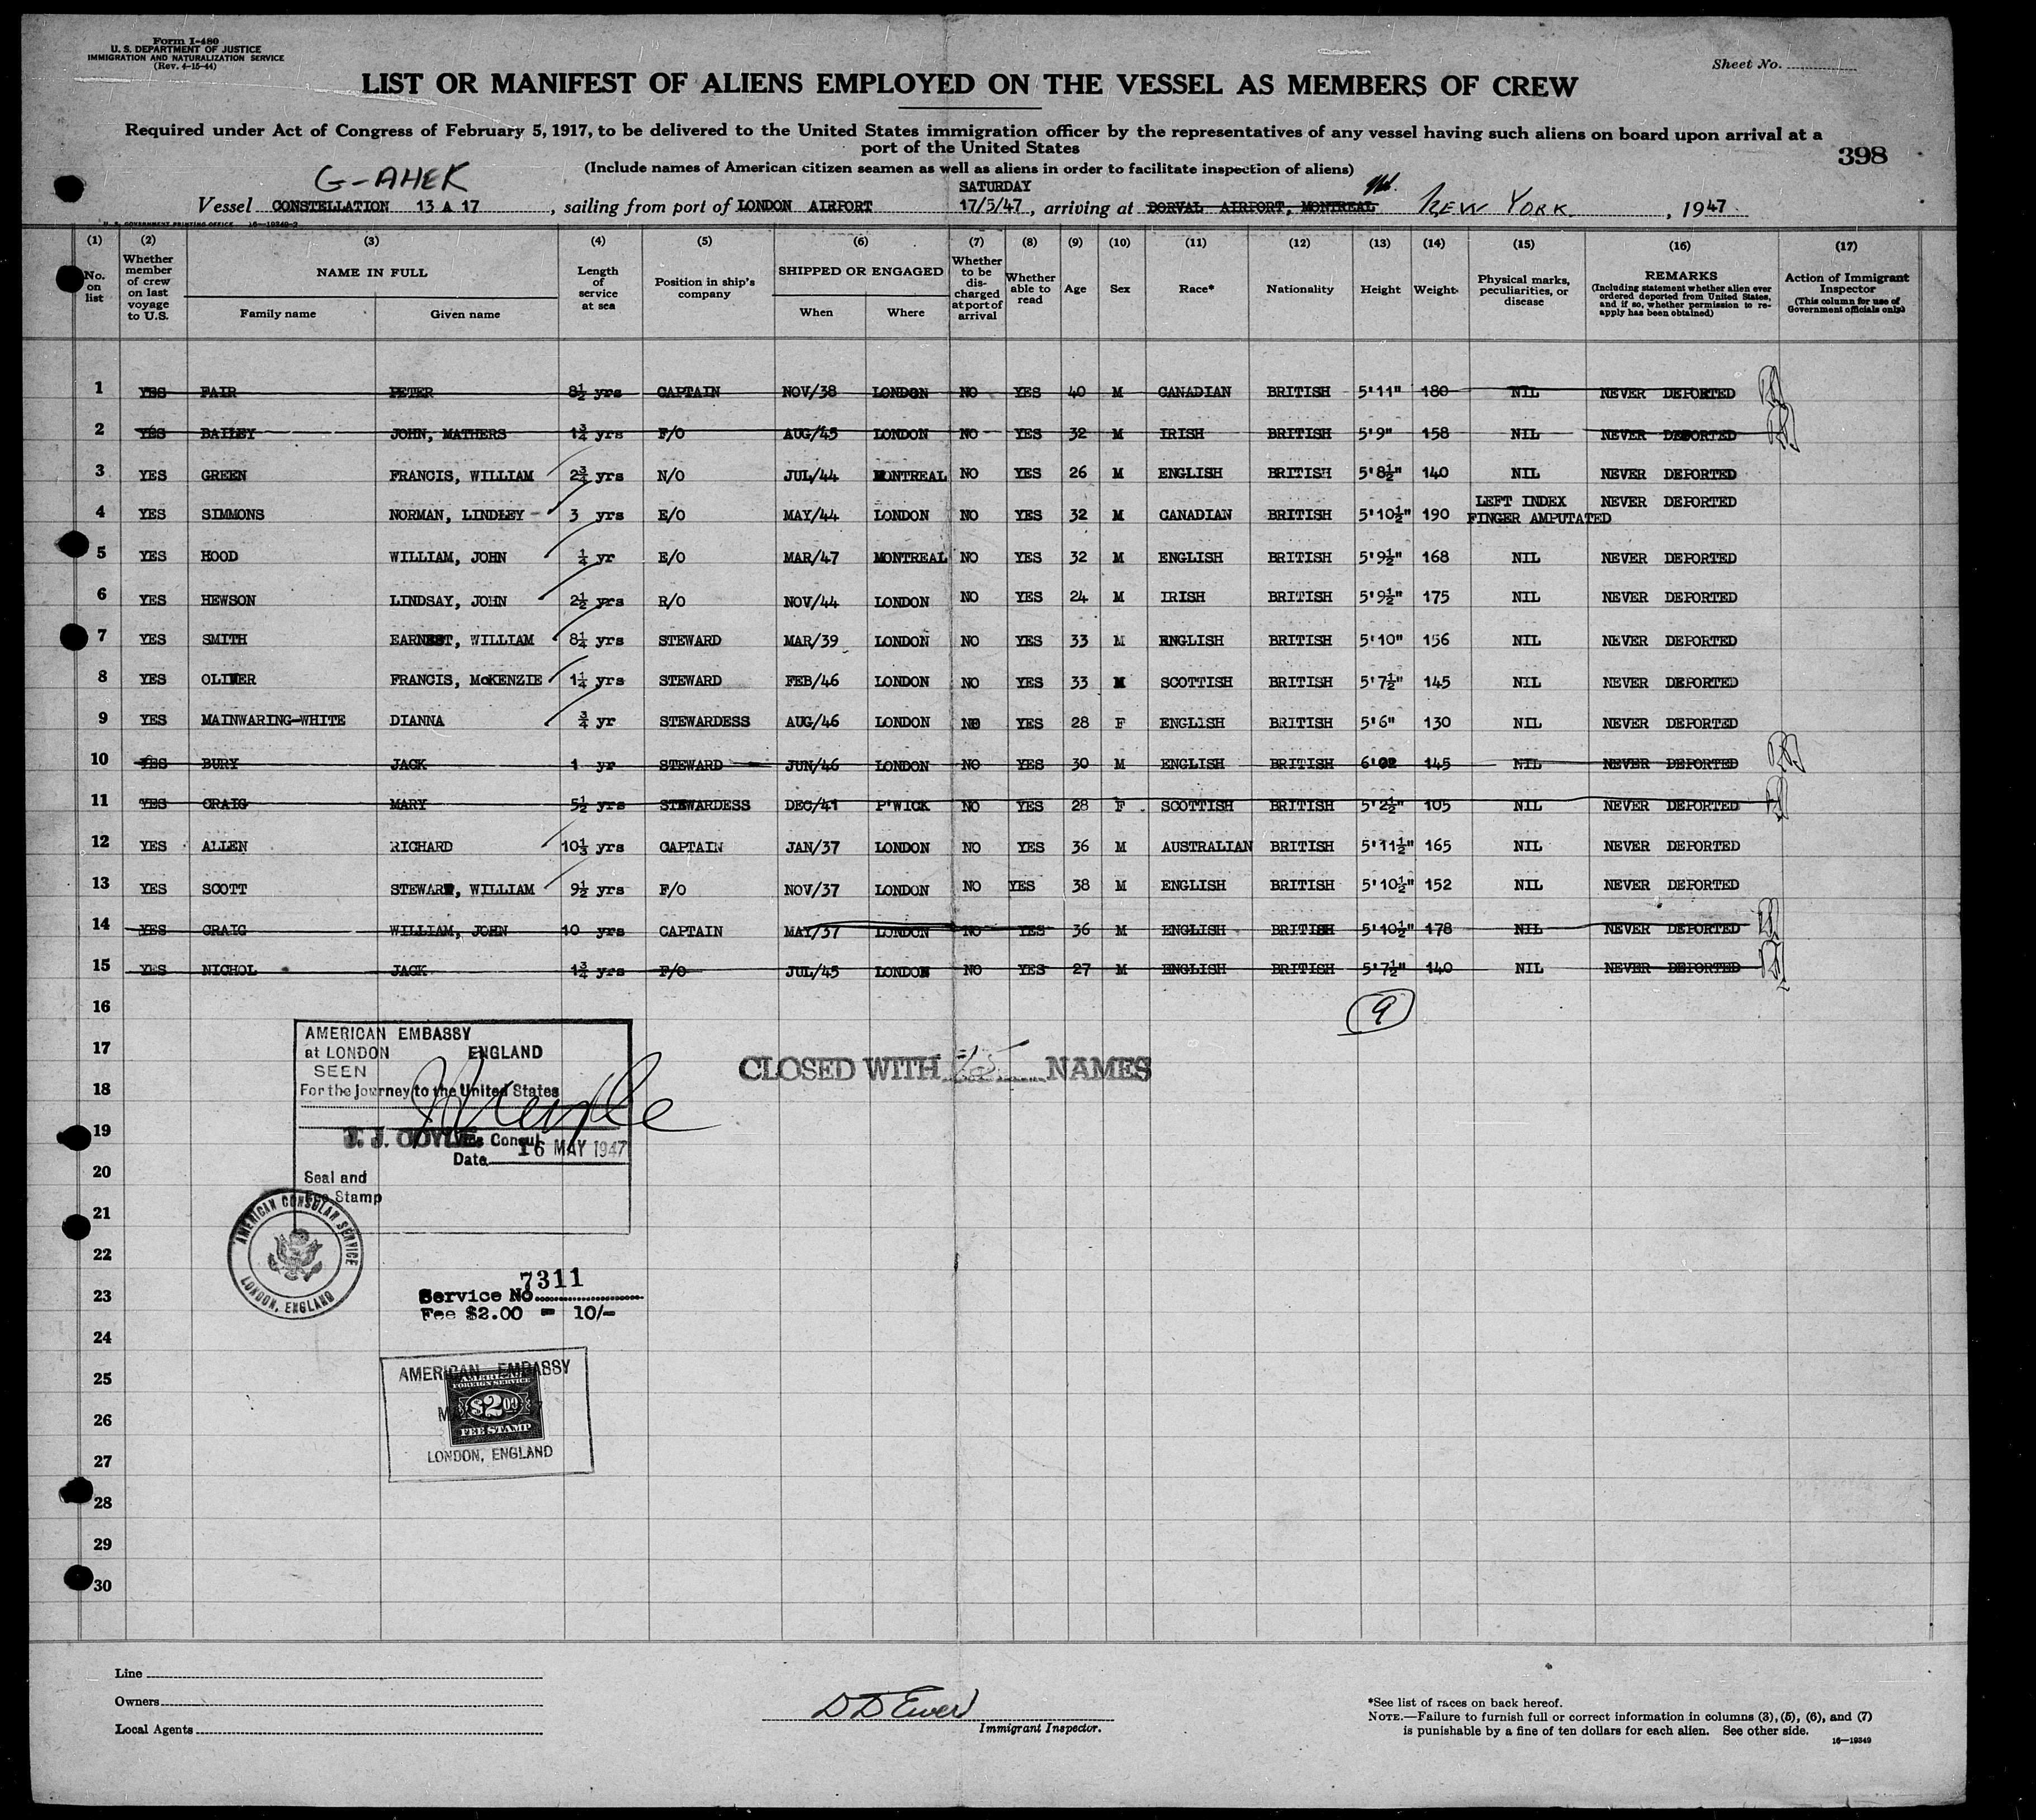 Form I-480
U. S. DEPARTMENT OF JUSTICE
IMMIGRATION AND NATURALIZATION SERVICE
(Rev. 4-15-44)
Sheet No.
LIST OR MANIFEST OF ALIENS EMPLOYED ON THE VESSEL AS MEMBERS OF CREW
Required under Act of Congress of February 5, 1917, to be delivered to the United States immigration officer by the representatives of any vessel having such aliens on board upon arrival at a
port of the United States
398
(Include names of American citizen seamen as well as aliens in order to facilitate inspection of aliens)
G-AHEK
SATURDAY
Vessel CONSTELLATION 13 A 17, sailing from port of LONDON AIRPORT 17/5/47, arriving at DORVAL AIRPORT, MONTREAL NEW YORK, 1947
U. S. GOVERNMENT PRINTING OFFICE 16-19349-2
(1) (2) (3) (4) (5) (6) (7) (8) (9) (10) (11) (12) (13) (14) (15) (16) (17)
No. on list
Whether member of crew on last voyage to U.S.
NAME IN FULL
Family name
Given name
Length of service at sea
Position in ship's company
SHIPPED OR ENGAGED
When
Where
Whether to be discharged at port of arrival
Whether able to read
Age
Sex
Race*
Nationality
Height
Weight
Physical marks, peculiarities, or disease
REMARKS
(Including statement whether alien ever ordered deported from United States, and if so, whether permission to reapply has been obtained)
Action of Immigrant Inspector
(This column for use of Government officials only)
1 YES FAIR PETER 8½ yrs CAPTAIN NOV/38 LONDON NO YES 40 M CANADIAN BRITISH 5'11" 180 NIL NEVER DEPORTED
2 YES BAILEY JOHN, MATHERS 1¾ yrs F/O AUG/45 LONDON NO YES 32 M IRISH BRITISH 5'9" 158 NIL NEVER DEPORTED
3 YES GREEN FRANCIS, WILLIAM 2¾ yrs N/O JUL/44 MONTREAL NO YES 26 M ENGLISH BRITISH 5'8½" 140 NIL NEVER DEPORTED
4 YES SIMMONS NORMAN, LINDLEY 3 yrs E/O MAY/44 LONDON NO YES 32 M CANADIAN BRITISH 5'10½" 190 LEFT INDEX FINGER AMPUTATED NEVER DEPORTED
5 YES HOOD WILLIAM, JOHN ¼ yr E/O MAR/47 MONTREAL NO YES 32 M ENGLISH BRITISH 5'9½" 168 NIL NEVER DEPORTED
6 YES HEWSON LINDSAY, JOHN 2½ yrs R/O NOV/44 LONDON NO YES 24 M IRISH BRITISH 5'9½" 175 NIL NEVER DEPORTED
7 YES SMITH EARNEST, WILLIAM 8¼ yrs STEWARD MAR/39 LONDON NO YES 33 M ENGLISH BRITISH 5'10" 156 NIL NEVER DEPORTED
8 YES OLIVER FRANCIS, McKENZIE 1¼ yrs STEWARD FEB/46 LONDON NO YES 33 M SCOTTISH BRITISH 5'7½" 145 NIL NEVER DEPORTED
9 YES MAINWARING-WHITE DIANNA ¾ yr STEWARDESS AUG/46 LONDON NO YES 28 F ENGLISH BRITISH 5'6" 130 NIL NEVER DEPORTED
10 YES BURY JACK 1 yr STEWARD JUN/46 LONDON NO YES 30 M ENGLISH BRITISH 6'02 145 NIL NEVER DEPORTED
11 YES CRAIG MARY 5½ yrs STEWARDESS DEC/41 P'WICK NO YES 28 F SCOTTISH BRITISH 5'2½" 105 NIL NEVER DEPORTED
12 YES ALLEN RICHARD 10⅓ yrs CAPTAIN JAN/37 LONDON NO YES 36 M AUSTRALIAN BRITISH 5'11½" 165 NIL NEVER DEPORTED
13 YES SCOTT STEWART, WILLIAM 9½ yrs F/O NOV/37 LONDON NO YES 38 M ENGLISH BRITISH 5'10½" 152 NIL NEVER DEPORTED
14 YES CRAIG WILLIAM, JOHN 10 yrs CAPTAIN MAY/37 LONDON NO YES 36 M ENGLISH BRITISH 5'10½" 178 NIL NEVER DEPORTED
15 YES NICHOL JACK 1¾ yrs F/O JUL/45 LONDON NO YES 27 M ENGLISH BRITISH 5'7½" 140 NIL NEVER DEPORTED
16
9
17
18
19
20
21
22
23
24
25
26
27
28
29
30
AMERICAN EMBASSY
at LONDON ENGLAND
SEEN
For the journey to the United States
J. J. COYLE
Vice Consul
Date 16 MAY 1947
Seal and
Fee Stamp
CLOSED WITH 15 NAMES
AMERICAN CONSULAR SERVICE
LONDON, ENGLAND
Service No. 7311
Fee $2.00 = 10/-
AMERICAN EMBASSY
AMERICAN
FOREIGN SERVICE
$2.00
FEE STAMP
LONDON, ENGLAND
Line
Owners
Local Agents
Immigrant Inspector.
*See list of races on back hereof.
NOTE.—Failure to furnish full or correct information in columns (3), (5), (6), and (7)
is punishable by a fine of ten dollars for each alien. See other side.
16—19349